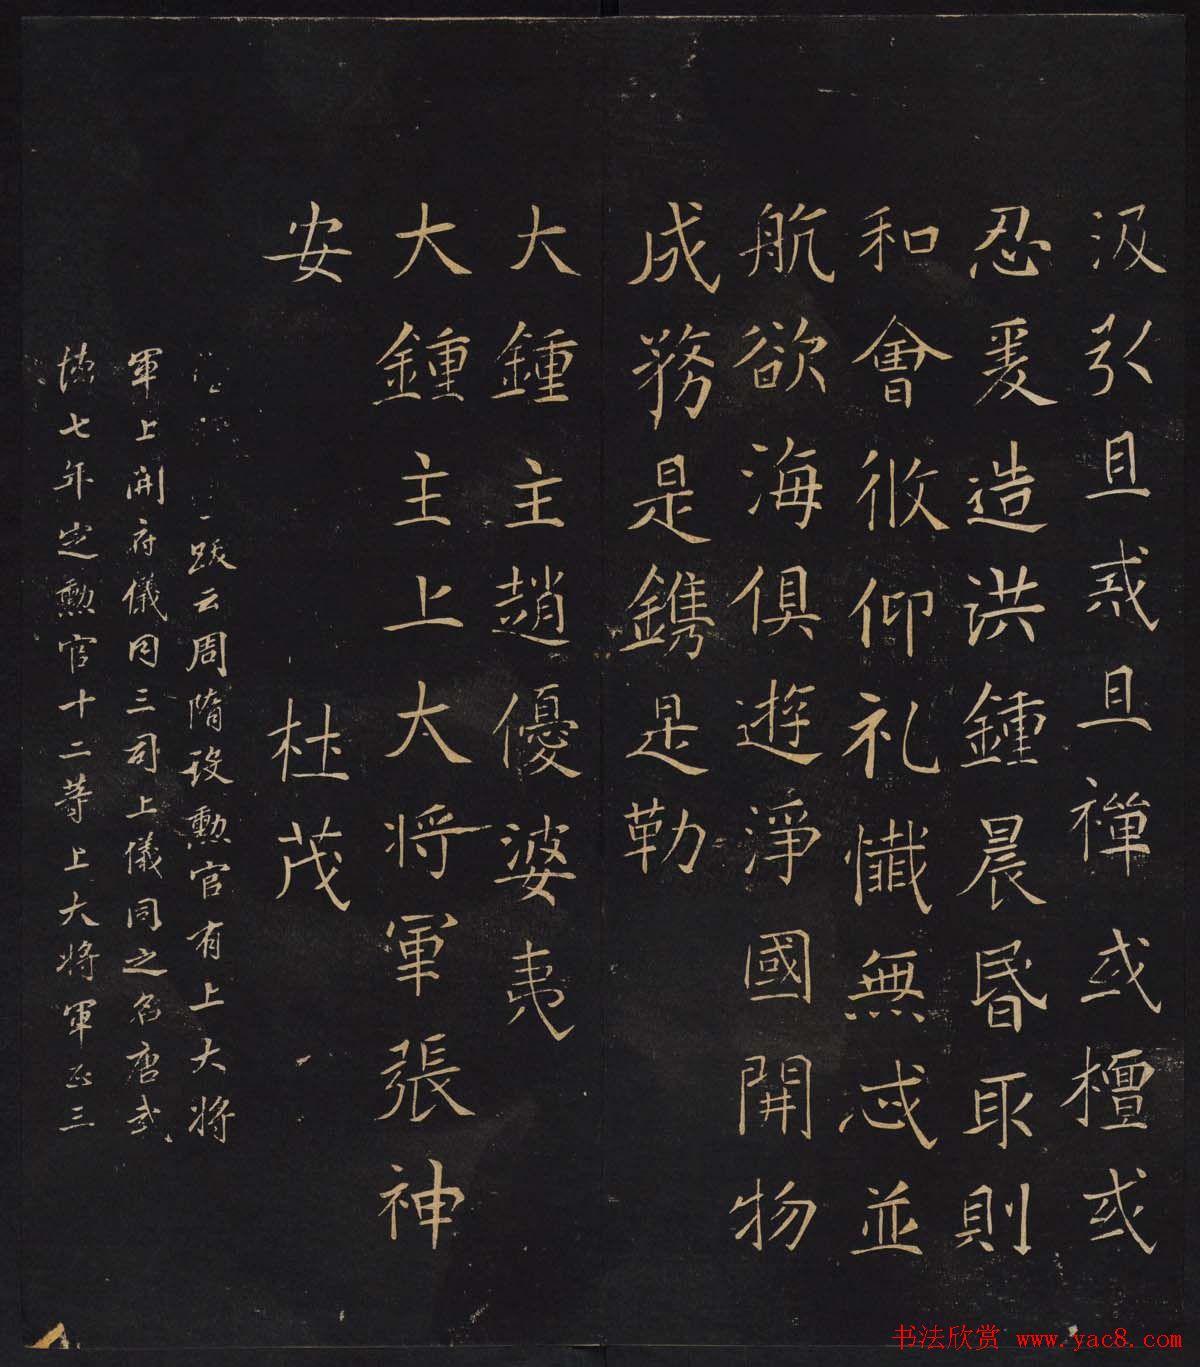 汲引且戒且禅或檀或
忍爰造洪鍾晨昏取則
和會攸仰礼懺無忒並
航欲海俱遊淨國開物
成務是鐫是勒
大鍾主趙優婆夷
大鍾主上大将軍張神
安　杜茂
跋云周隋設勲官有上大将
軍上開府儀同三司上儀同之名唐武
德七年定勲官十二等上大将軍正三
书法欣赏 www.yac8.com